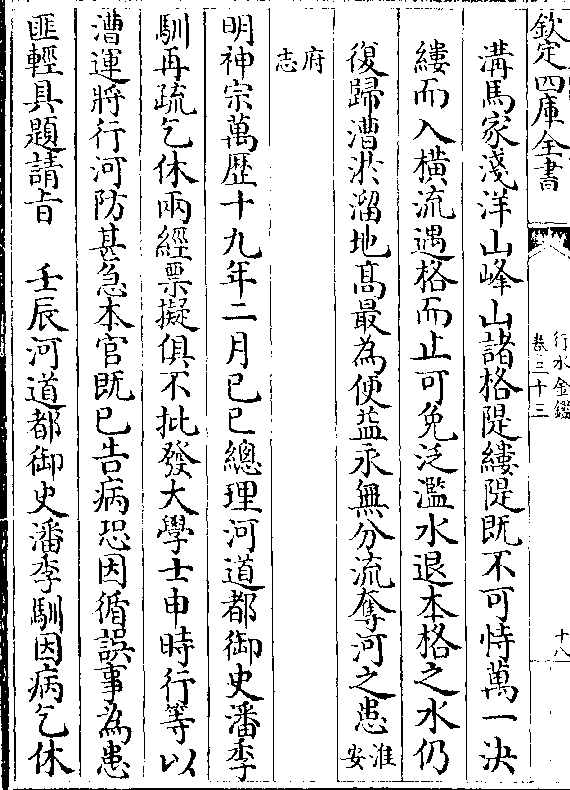 欽定四庫全書
行水金鑑
卷三十三
十八
溝馬家淺洋山峰山諸格隄縷隄既不可恃萬一決
縷而入橫流遇格而止可免泛濫水退本格之水仍
復歸漕淤溜地高最為便益永無分流奪河之患淮安
府志
明神宗萬歷十九年二月己巳總理河道都御史潘季
馴再疏乞休兩經票擬俱不批發大學士申時行等以
漕運將行河防甚急本官既已告病恐因循誤事為患
匪輕具題請旨　壬辰河道都御史潘季馴因病乞休